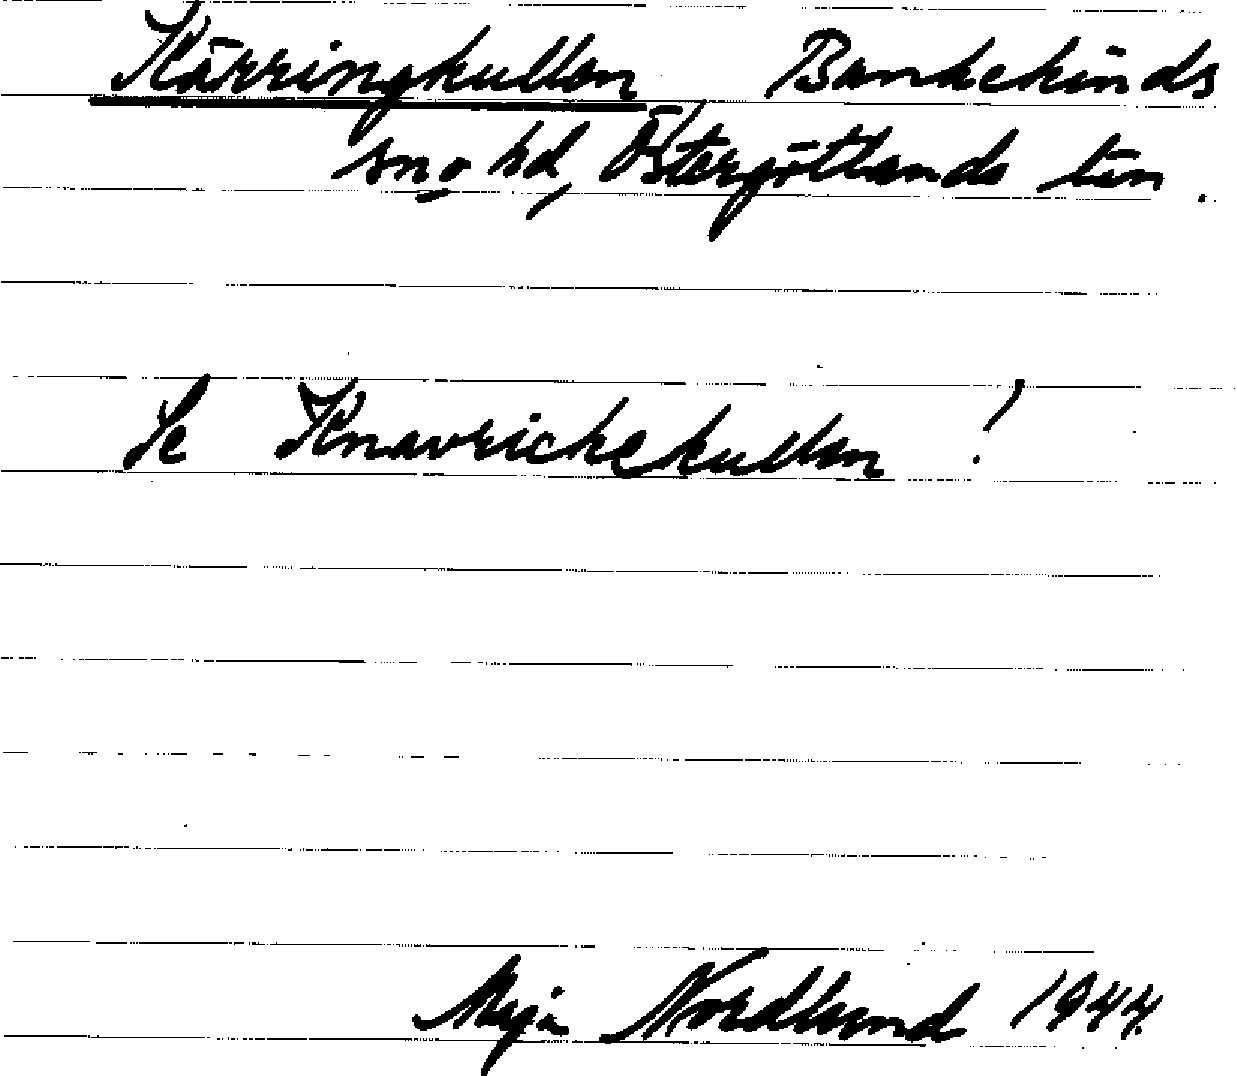 Kärringkullen Bankekinds
sn o hd, Östergötlands län.
Se Knavrickekullen!
Maja Nordlund 1944.